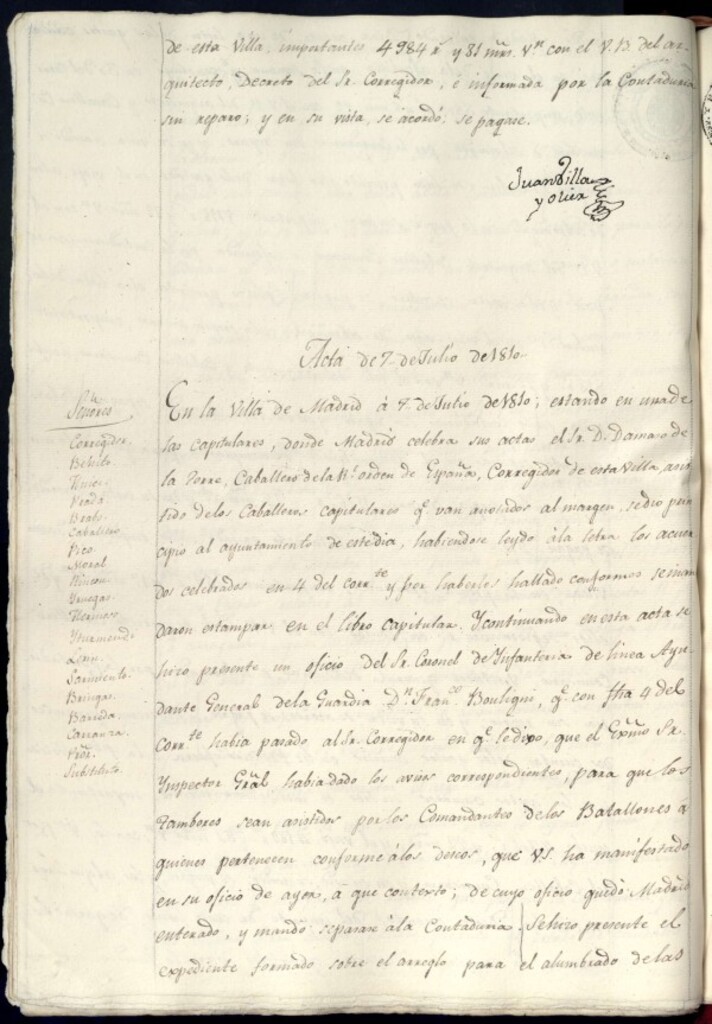 de esta Villa, importantes 4984 r.^s y 31 mrs. V.^n con el V.B. del ar-
quitecto, Decreto del Sr. Corregidor, é informada por la Contaduria
sin reparo; y en su vista, se acordó: se pague.
Juan Villa
y Olier
Acta de 7 de Julio de 1810.
Señores
Corregidor.
Prado
Caballero
Pico
Moral
Rincon
Yruegas
Hermoso
Sarmiento.
Bringas.
Barreda.
Carranza.
Substituto.
En la Villa de Madrid á 7 de Julio de 1810; estando en una de
las capitulares, donde Madrid celebra sus actas el Sr. D. Damaso de
la Torre, Caballero de la R.^l orden de España, Corregidor de esta Villa, asis-
tido de los Caballeros capitulares q.^e van anotados al margen, se dio prin-
cipio al ayuntamiento de este dia, habiendose leydo á la letra los acuer-
dos celebrados en 4 del corr.^te y por haberlos hallado conformes se man-
daron estampar en el libro capitular. Y continuando en esta acta se
hizo presente un oficio del Sr. Coronel de Infanteria de linea Ayu-
dante General de la Guardia D.^n Fran.^co Bouligni, q.^e con fha 4 del
Corr.^te habia pasado al Sr. Corregidor en q.^e le dixo, que el Exmo Sr.
Ynspector Gral habia dado los avisos correspondientes, para que los
Tambores sean asistidos por los Comandantes de los Batallones á
quienes pertenecen conforme á los deseos, que V.S. ha manifestado
en su oficio de ayer, á que contexto; de cuyo oficio quedó Madrid
enterado, y mandó separase á la Contaduria | Se hizo presente el
expediente formado sobre el arreglo para el alumbrado de las